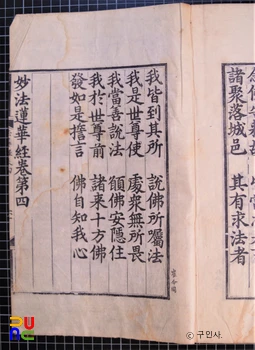 諸聚落城邑　其有求法者
我皆到其所　說佛所囑法
我是世尊使　處衆無所畏
我當善說法　願佛安隱住
我於世尊前　諸來十方佛
發如是誓言　佛自知我心
妙法蓮華經卷第四
ⓒ 구인사.